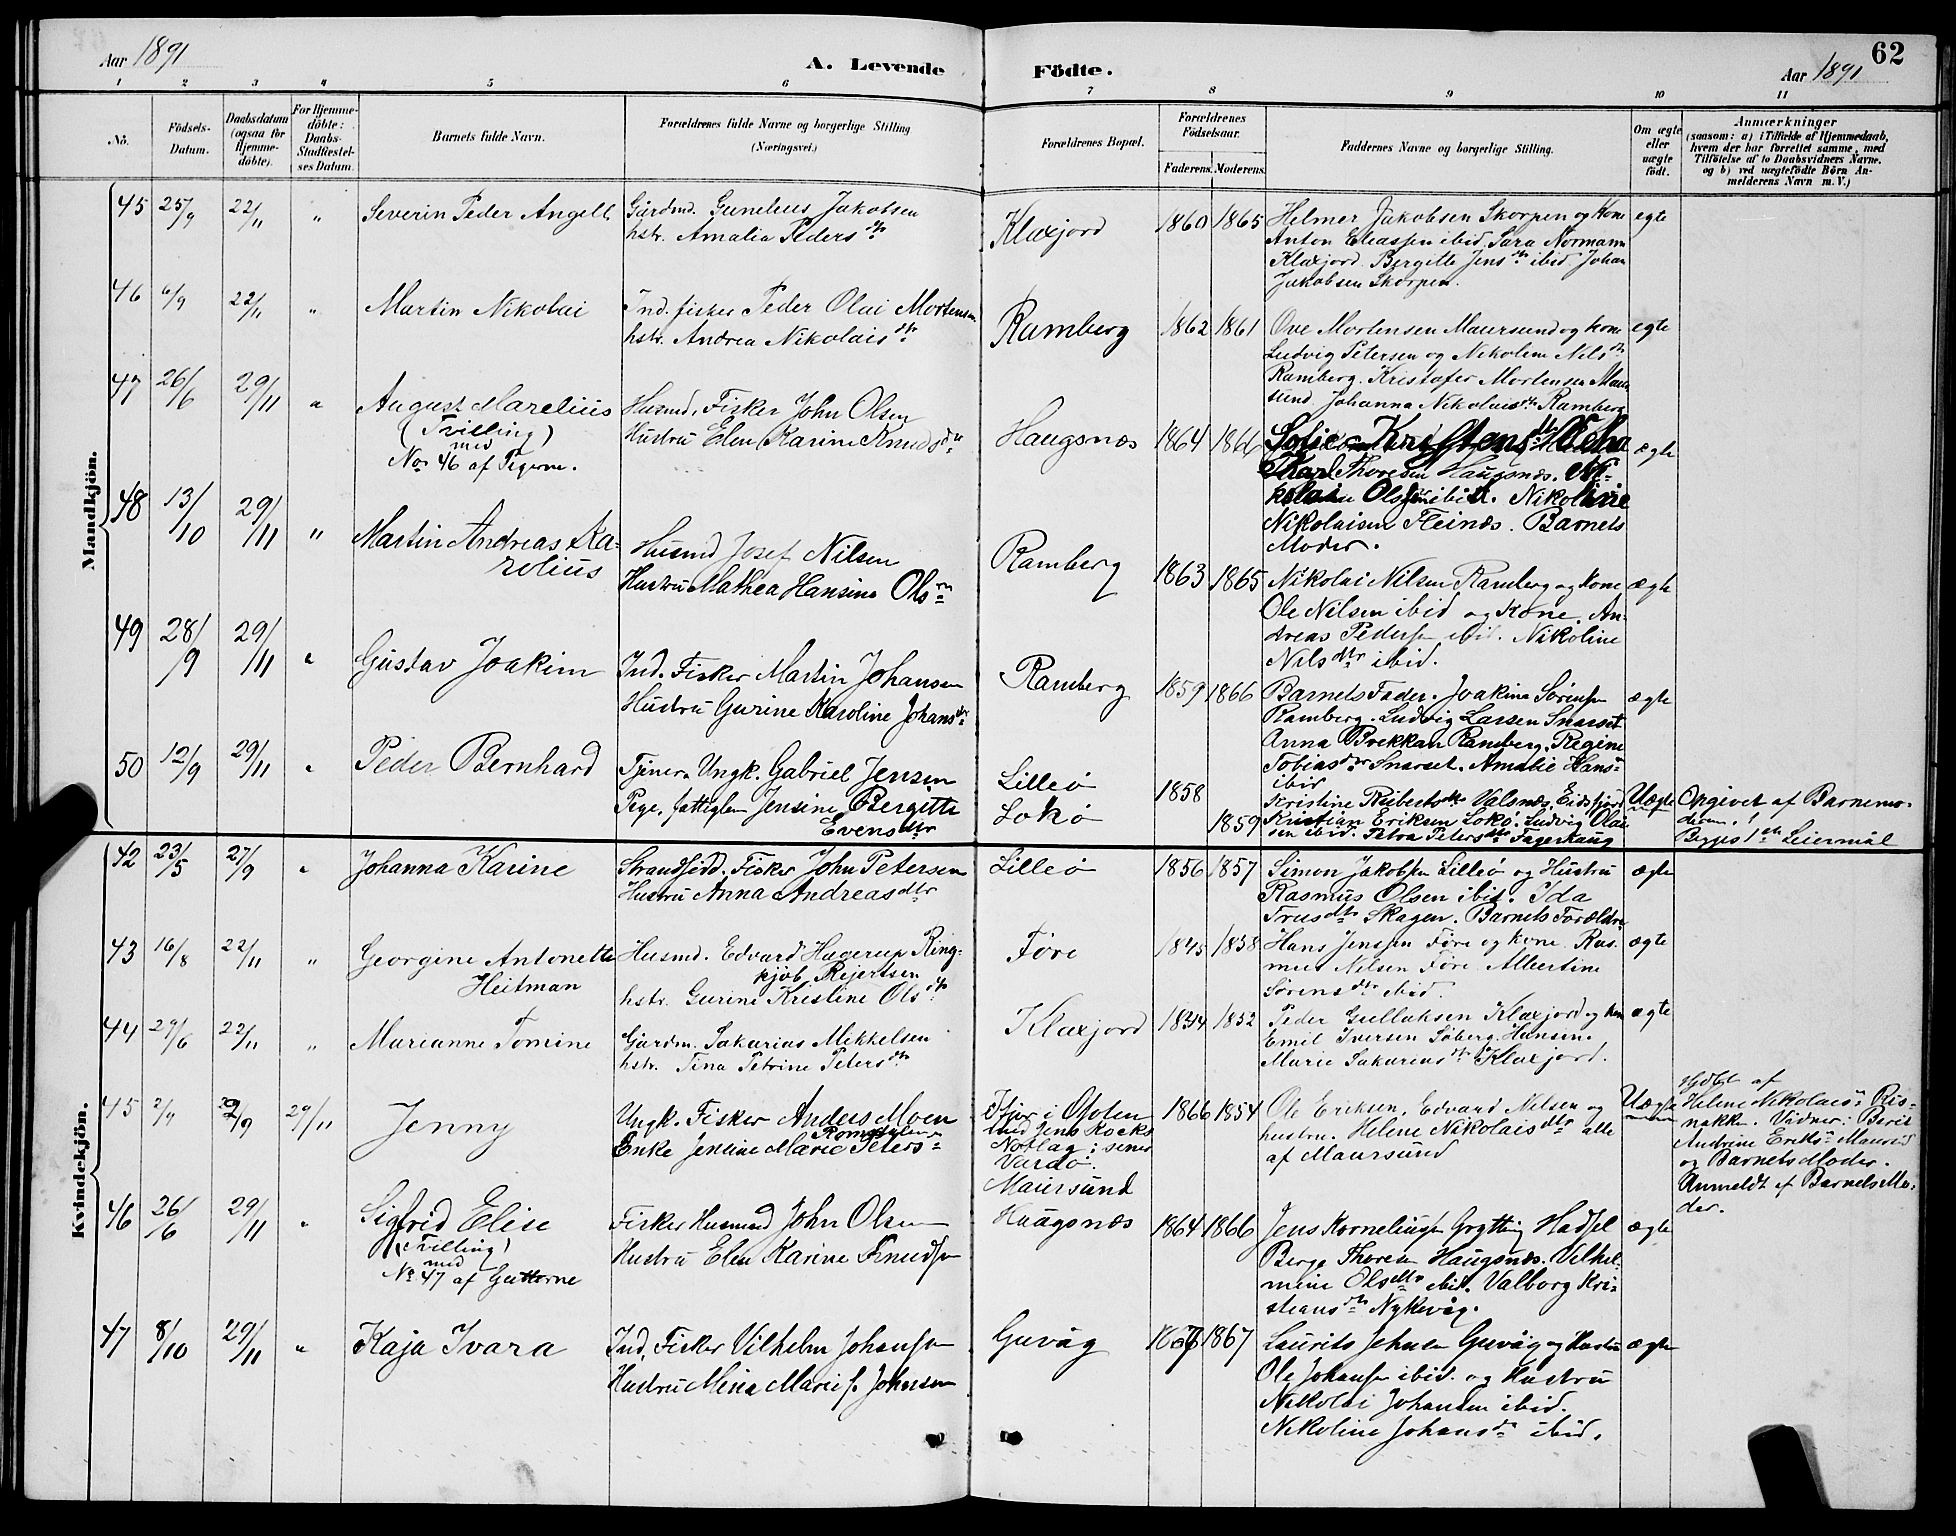 Aar 1891
A. Levende Födte.
Aar 1891
62
1 2 3 4 5 6 7 8 9 10 11
No.
Födsels-Datum.
Daabsdatum (ogsaa for Hjemme-döbte).
For Hjemme-döbte: Daabs-Stadfæstel-ses Datum.
Barnets fulde Navn.
Forældrenes fulde Navne og borgerlige Stilling (Næringsvei.)
Forældrenes Bopæl.
Forældrenes Födselsaar.
Faderens. Moderens.
Faddernes Navne og borgerlige Stilling.
Om ægte eller uægte födt.
Anmærkninger
(saasom: a) i Tilfælde af Hjemmedaab,
hvem der har forrettet samme, med
Tilföielse af to Daabsvidners Navne,
og b) ved uægtefödte Börn An-
melderens Navn m. V.)
Mandkjön.
45 25/9 22/11 " Severin Peder Angell
Gårdmd. Gunelius Jakobsen
hstr. Amalia Pedersdtr
Klaxjord 1860 1865
Helmer Jakobsen Skorpen og Kone
Anton Eliassen ibid. Sara Normann
Klaxjord. Bergitte Jensdtr ibid. Johan
Jakobsen Skorpen.
egte
46 6/9 22/11 " Martin Nikolai
Ind. fisker Peder Olai Mortensen
hstr. Andrea Nikolaisdtr
Ramberg 1862 1861
Ove Mortensen Maursund og kone
Ludvig Petersen og Nikoline Nilsdtr
Ramberg. Kristofer Mortensen Maur
sund. Johanna Nikolaisdtr Ramberg
egte
47 26/6 29/11 " August Marelius
(Tvilling)
med
No 46 af Pigerne.
Husmd. Fisker John Olsen
Hustru Elen Karine Knudsdtr
Haugsnæs 1864 1866
Thoresen Haugsnæs.
Olsen ibid. Nikoline
Nikolaisen Steinæs. Barnets
Moder.
ægte
48 13/10 29/11 " Martin Andreas Ka-
rolius
Husmd Josef Nilsen
Hustru Mathea Hansine Ols
Ramberg 1863 1865
Nikolai Nilsen Ramberg og kone
Ole Nilsen ibid og Kone. An-
dreas Pedersen ibid. Nikoline
Nilsdtr ibid.
ægte
49 28/9 29/11 " Gustav Joakim
Ind. Fisker Martin Johansen
Hustru Gurine Karoline Johansdtr
Ramberg 1859 1866
Barnets Fader. Joakim Sørensen
Ramberg. Ludvig Larsen Snarset
Anna Brekkan Ramberg. Regine
Tobiasdtr Snarset. Amalie Hans
ibid
ægte
50 12/9 29/11 " Peder Bernhard
Tjener Ungk. Gabriel Jensen
Pige, fattiglem Jensine Bergitte
Evensdtr
Lilleø
Lokø
1858
1859
Kristine Riibertsdtr Valsnæs, Eidsfjord
Kristian Eriksen Lokø. Ludvig Olai
sen ibid. Petra Petersdtr Fagerhaug
Uægte
Opgivet af Barnemo-
deren.
Begges 1ste Leiermål
Kvindekjön.
42 23/5 27/9 " Johanna Karine
Strandsidd. Fisker John Petersen
Hustru Anna Andreasdtr
Lilleø 1856 1857
Simon Jakobsen Lilleø og Hustru
Rasmus Olsen ibid. Ida
Skagen. Barnets Forældre
ægte
43 16/8 22/11 " Georgine Antonette
Heitman
Husmd. Edvard Hagerup Ring-
kjøb Rejertsen
hstr. Gurine Kristine Olsdtr
Føre 1845 1858
Hans Jenssen Føre og kone Ras-
mus Nilsen Føre Albertine
Sørensdtr ibid.
ægte
44 29/6 22/11 " Marianne Tomine
Gårdm. Sakarias Mikkelsen
hstr. Tina Petrine Petersdtr
Klaxjord 1844 1852
Peder Gullaksen Klaxjord og kone
Emil Iversen Søberg. Hansine
Marie Sakariasdtr Klaxjord.
ægte
45 2/9 29/11 Jenny
Ungk. Fisker Anders Moen
Romsdalen
Enke Jensine Marie Peters
i Ofoten
Jens Kocks
Notlag; senere
Vardø.
Maursund
1866 1854
Ole Eriksen, Edvard Nilsen og
hustru. Helene Nikolaisdtr alle
af Maursund
Uægte
Hjdbt af
Helene Nikolais Ris-
nakken. Vidner: Berit
Andrine Eriks Maursd
og Barnets Moder.
Anmeldt af Barnets Mo-
der.
46 26/6 29/11 " Sigfrid Elise
(Tvilling)
med
No 47 af Gutterne
Fisker Husmand John Olsen
Hustru Elen Karine Knudsen
Haugsnæs 1864 1866
Jens Korneliussen Grytting Hadsel
Berge Thoresen Haugsnæs. Vilhel-
mine Olsdtr ibid. Valborg Kri-
stiansdtr Nykvåg.
ægte
47 8/10 29/11 " Kaja Ivara
Ind. Fisker Vilhelm Johansen
Hustru Mina Marie f. Johnsen
Guvåg 1867
Laurits Jensen Guvåg og Hustru
Ole Johansen ibid. og Hustru
Nikolai Johansen ibid.
Nikoline Johansdtr ibid.
ægte